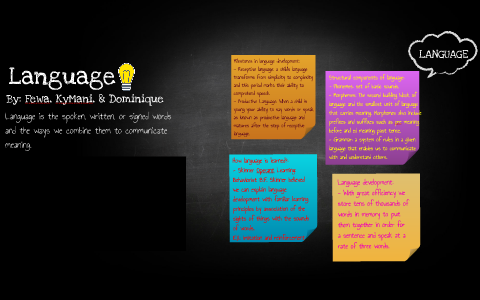 LANGUAGE
Language
By: Fewa, KyMani, & Dominique
Language is the spoken, written, or signed words
and the ways we combine them to communicate
meaning.
Milestones in language development:
- Receptive language: a childs language
transforms from simplicity to complexity
and this period marks their ability to
comprehend speech.
- Productive Language: When a child is
young, your ability to say words or speak
is known as productive language and
matures after the stage of receptive
language.
Structural components of language
- Phonemes: set of basic sounds.
- Morphemes: the second building block of
language and the smallest unit of language
that carries meaning. Morphemes also include
prefixes and suffixes such as pre meaning
before and ed meaning past tense.
- Grammar: a system of rules in a given
language that enables us to communicate
with and understand others.
How language is learned:
- Skinner: Operant Learning
Behaviorist B.F. Skinner believed
we can explain language
development with familiar learning
principles by association of the
sights of things with the sounds
of words.
Language development:
- With great efficiency we
store tens of thousands of
words in memory to put
them together in order for
a sentence and speak at a
rate of three words.